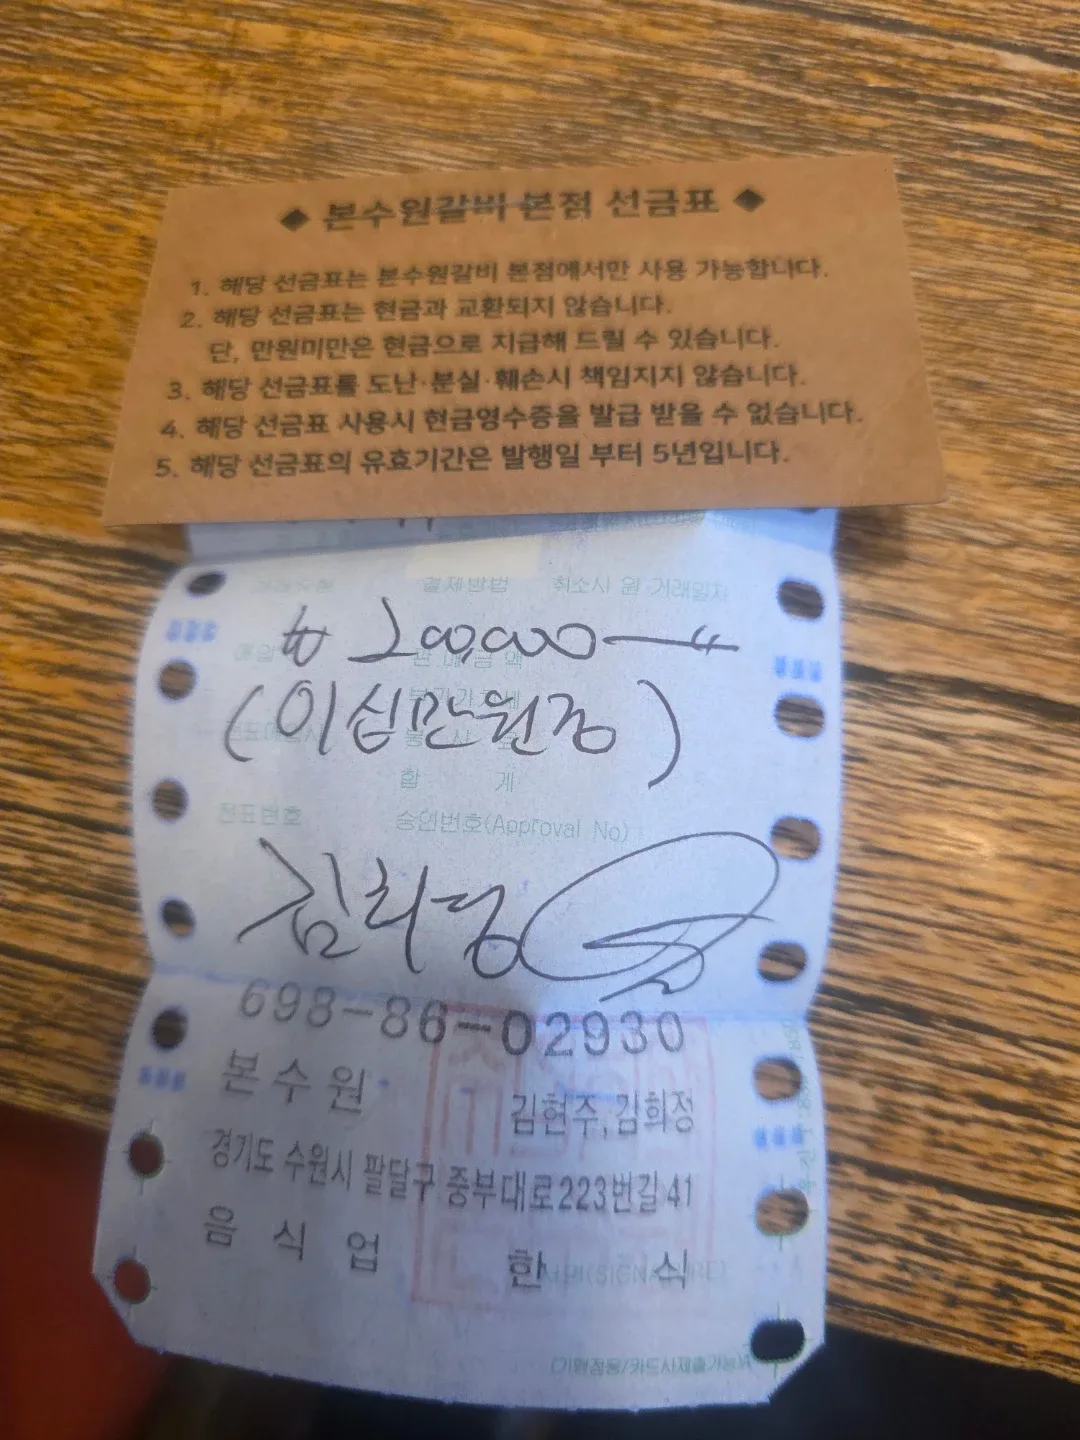 ◆ 본수원갈비 본점 선금표 ◆
1. 해당 선금표는 본수원갈비 본점에서만 사용 가능합니다.
2. 해당 선금표는 현금과 교환되지 않습니다.
단, 만원미만은 현금으로 지급해 드릴 수 있습니다.
3. 해당 선금표를 도난·분실·훼손시 책임지지 않습니다.
4. 해당 선금표 사용시 현금영수증을 발급 받을 수 없습니다.
5. 해당 선금표의 유효기간은 발행일 부터 5년입니다.
결제방법 취소시 원 거래일자
₩ 200,000
판매금액
(이십만원정)
합 계
전표번호 승인번호(Approval No)
김희정
698-86-02930
본수원 김현주,김희정
경기도 수원시 팔달구 중부대로223번길 41
음식업 한식